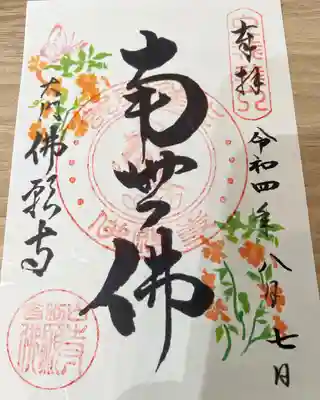 奉拝
令和四年八月七日
南無佛
大门佛願寺